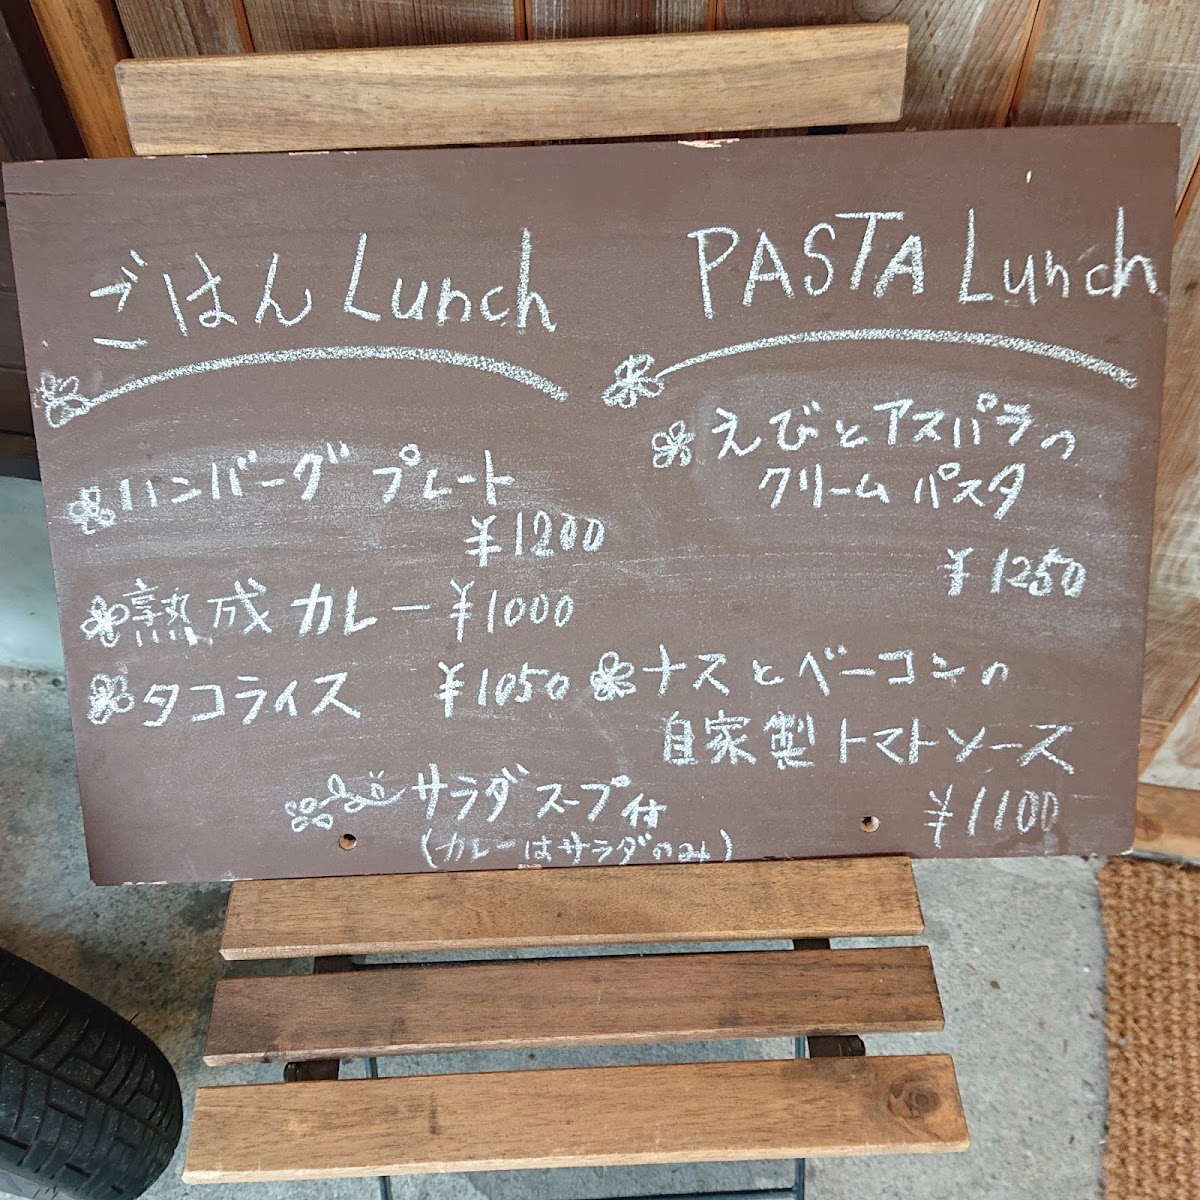 ごはん Lunch
ハンバーグ プレート
¥1200
熟成 カレー ¥1000
タコライス ¥1050
PASTA Lunch
えびとアスパラの
クリーム パスタ
¥1250
ナスとベーコンの
自家製トマトソース
¥1100
サラダ スープ付
(カレーはサラダのみ)